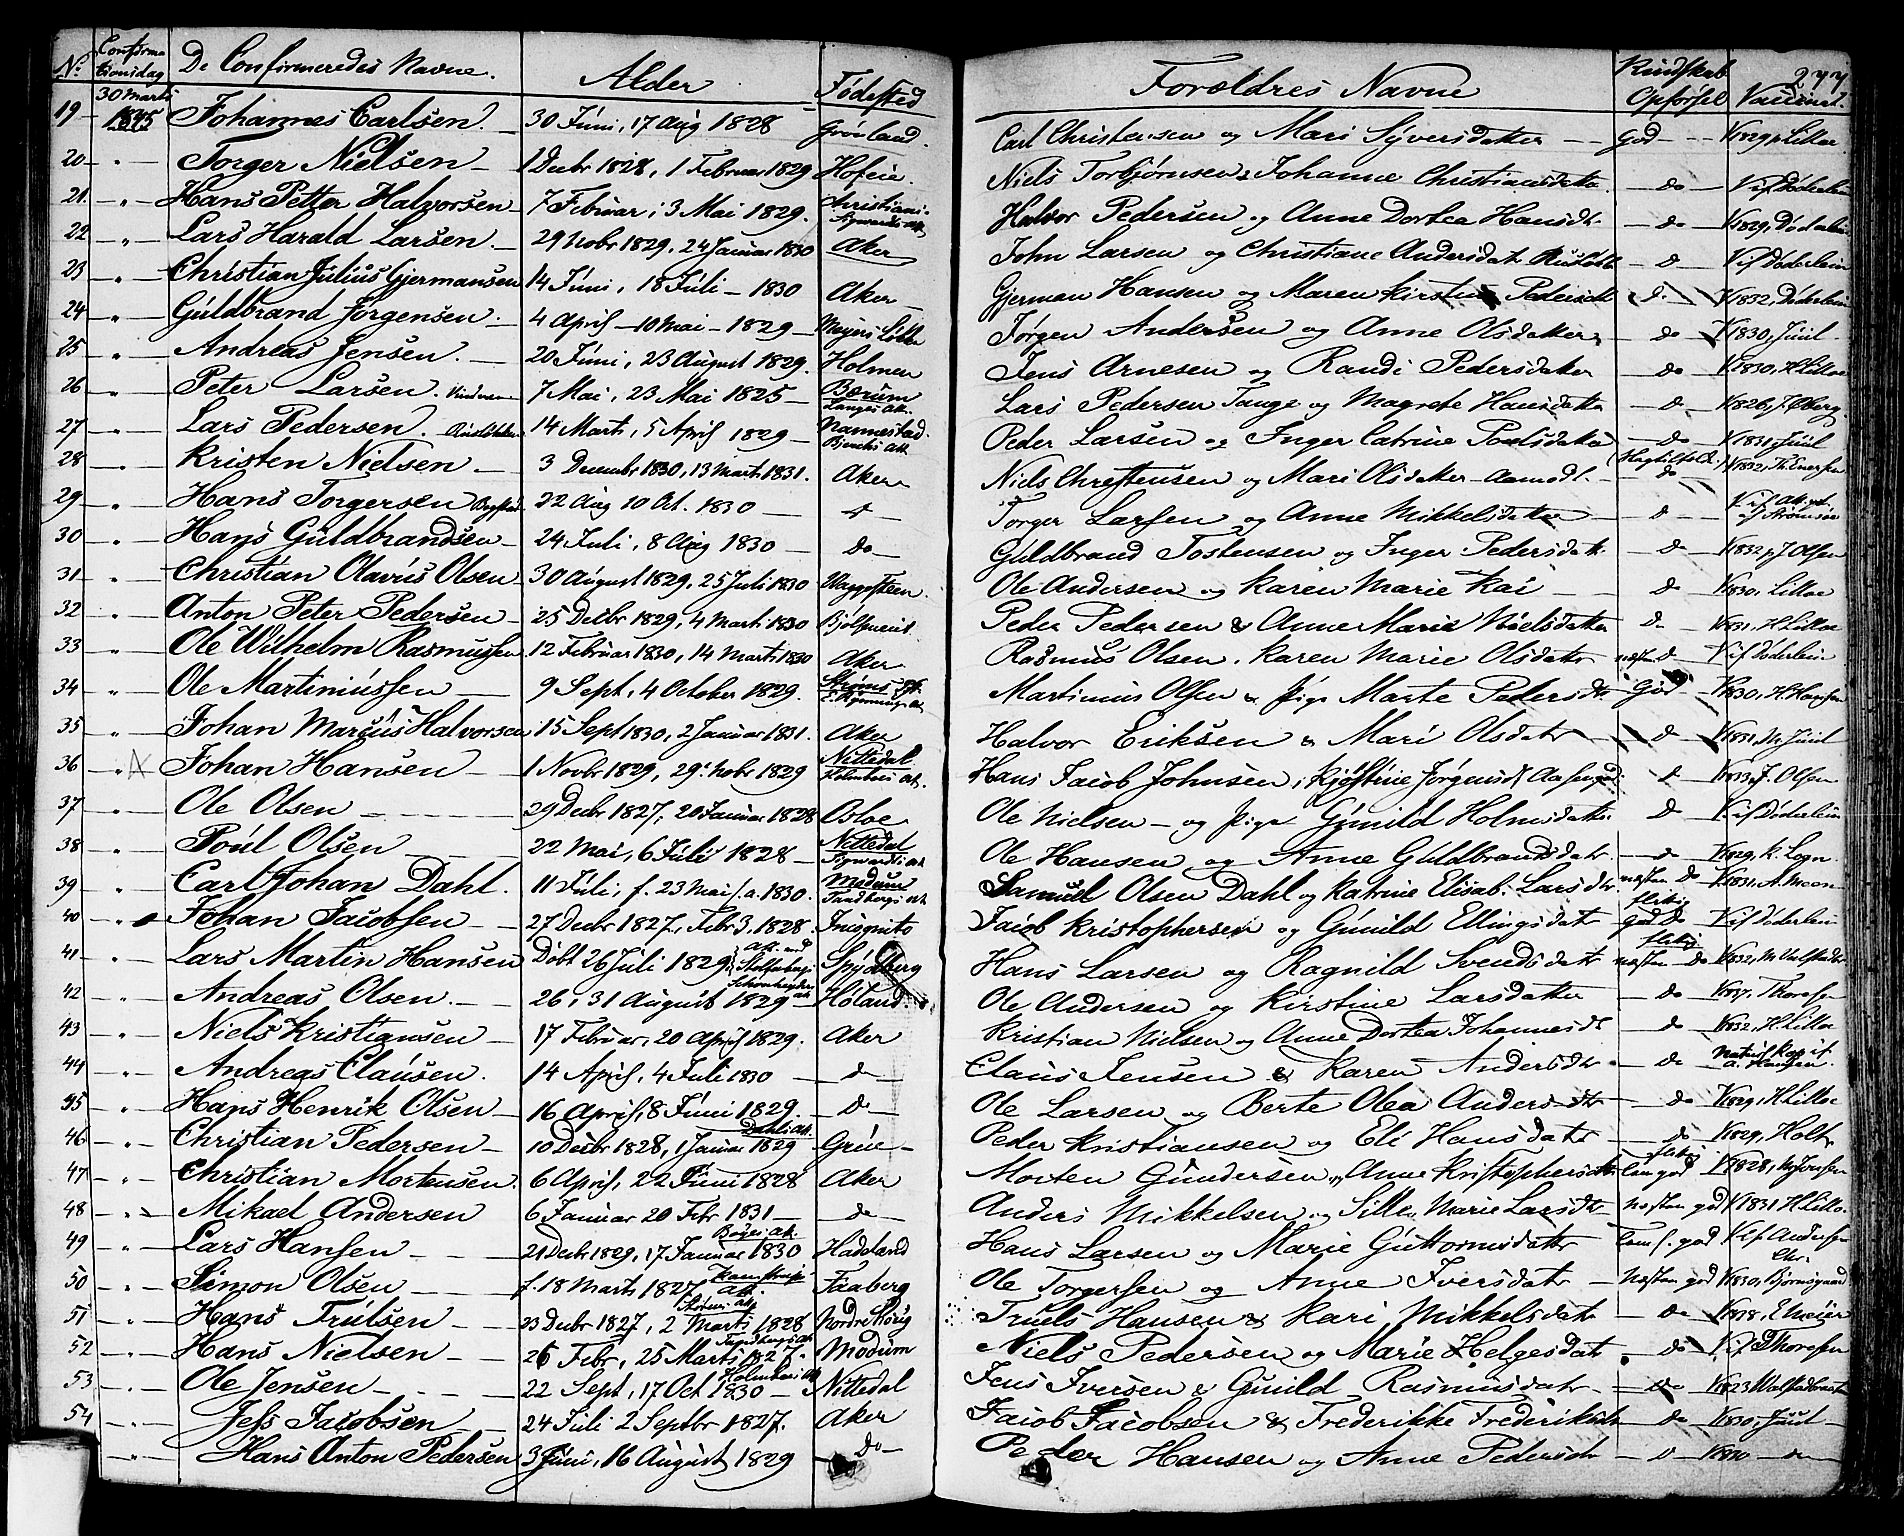 No. Confirmationsdag De Confirmeredes Navne. Alder Fødested Forældres Navne Kundskab Opførsel Vaccinat. 277
19 30 Marts 1845 Johannes Carlsen. 30 Juni, 17 Aug 1828 Grønland. Carl Christensen og Mari Syversdatter God V. 1829, Lilloe
20 " Torger Nielsen 1 Decbr 1828, 1 Februar 1829 Hofeie. Niels Torbjørnsen, Johanne Christiansdatter do V. if Døderlein
21 " Hans Petter Halvorsen 7 Februar, 3 Mai 1829. Halvor Pedersen og Anne Dortea Hansdtr do V. 1829, Døderlein
22 " Lars Harald Larsen. 29 Nobr 1829, 24 Januar 1830 Aker John Larsen og Christiane Andersdatr do V. if Døderlein
23 " Christian Julius Gjermansen 14 Juni, 18 Juli 1830 Aker Gjerman Hansen og Maren Kirstine Pedersdtr do V. 1832, Døderlein
24 " Guldbrand Jørgensen. 4 April 10 Mai 1829 Meyers Løkke Jørgen Andersen og Anne Olsdatter do V. 1830, Juul
25 " Andreas Jensen. 20 Juni, 23 August 1829. Holmen Jens Arnesen og Randi Pedersdatter do V. 1830, H. Lilloe
26 " Peter Larsen. 7 Mai, 23 Mai 1825 Bærum Langes att. Lars Pedersen Tange og Magrete Hansdatter do V. 1826,
27 " Lars Pedersen. 14 Marts, 5 April 1829 Nannestad. Peder Larsen og Inger Catrine Poulsdatter do V. 1831, Juul
28 " Kristen Nielsen 3 Decembr 1830, 13 Marts 1831. Aker Niels Christensen og Mari Olsdatter do V. 1832,
29 " Hans Torgersen 22 Aug 10 Oct. 1830 do Torger Larsen og Anne Mikkelsdatter do V. if att.
30 " Hans Guldbrandsen 24 Juli, 8 Aug 1830 do Guldbrand Tostensen og Inger Pedersdatr do V. 1832, J. Olsen
31 " Christian Olavus Olsen 30 August 1829, 25 Juli 1830 Ole Andersen og Karen Marie Kai do V. 1830, Lilloe
32 " Anton Peter Pedersen 25 Decbr 1829, 4 Marts 1830 Peder Pedersen & Anne Marie Nielsdatter do V. 1831, H. Lilloe
33 " Ole Wilhelm Rasmussen 12 Februar 1830, 14 Marts 1830 Aker Rasmus Olsen, Karen Marie Olsdatr næsten do V. if Døderlein
34 " Ole Martiniussen 9 Sept, 4 October 1829. Martinius Olsen & Pige Marte Pedersdtr God V. 1830, H. Hansen
35 " Johan Marcus Halvorsen 15 Sept 1830, 2 Januar 1831. Aker Halvor Eriksen & Mari Olsdatr do V. 1831, Juul
36 " Johan Hansen 1 Novbr 1829, 29 Nobr 1829 Nittedal Holmboes att. Hans Jacob Johnsen, Kjøstine Jørgensdt do V. 1833, J. Olsen
37 " Ole Olsen 29 Decbr 1827, 20 Januar 1828 Osloe Ole Nielsen og Pige Gunild Holmsdatter do V. if Døderlein
38 " Poul Olsen 22 Mai, 6 Juli 1828 Nittedal Ole Hansen og Anne Guldbrandsdatr. do V. 1829, K. Logn
39 " Carl Johan Dahl. 11 Juli, f. 23 Mai s.a. 1830. Modum Tandbergs att Samuel Olsen Dahl og Katrine Elisab. Larsdtr næsten do V. 1831, A. Moen
40 " Johan Jacobsen 27 Decbr 1827, Febr 3, 1828 Incognito Jacob Kristophersen og Gunild Ellingsdatr flittig god do V. if Døderlein
41 " Lars Martin Hansen Døbt 26 Juli 1829 Spydberg Hans Larsen og Ragnild Svendsdatr flittig næsten do V. 1832,
42 " Andreas Olsen. 26, 31 August 1829 Høland. Ole Andersen og Kirstine Larsdatter do Thoresen
43 " Niels Kristiansen 17 Februar, 20 April 1829. Aker Kristian Nielsen og Anne Dortea Johannesdt do V. 1832, H. Lilloe
44 " Andreas Clausen. 14 April, 4 Juli 1830 do Claus Jensen & Karen Andersdtr do
45 " Hans Henrik Olsen 16 April, 8 Juni 1829. do Ole Larsen og Berte Olea Andersdtr do V. 1829, H. Lilloe
46 " Christian Pedersen 10 Decbr 1828, 1 Januar 1829 Dahls att. Grue Peder Kristiansen og Eli Hansdatr do V. 1829, Holte
47 " Christian Mortensen. 6 April, 22 Juni 1828 Aker Morten Gundersen, Anne Kristophersdtr flittig god V. 1828, Jonsen
48 " Mikael Andersen 6 Januar 20 Febr 1831 do Anders Mikkelsen og Sille Marie Larsdtr Næsten god V. 1831 H. Lilloe
49 " Lars Hansen 21 Decbr 1829, 17 Januar 1830 Hadeland Hans Larsen og Marie Guttormsdatter god V. if Andersen
50 " Simon Olsen f. 18 Marts 1827 Faaberg Ole Torgersen og Anne Iversdatr Næsten god V. 1830, Bjørnsgaard
51 " Hans Trulsen 23 Decbr 1827, 2 Marts 1828 Truels Hansen & Kari Mikkelsdatr do E. Meier
52 " Hans Nielsen 26 Febr, 25 Marts 1827. Tandbergs att Modum Niels Pedersen og Marie Helgesdatr do V. if Thoresen
53 " Ole Jensen 22 Sept, 17 Oct 1830 Holmboes att Nittedal Jens Iversen & Gunild Rasmusdatr do V. 1823
54 " Jess Jacobsen 24 Juli 2 Septbr 1827. Aker Jacob Jacobsen & Frederikke Frederiksdtr do V. 1830, Juul
" Hans Anton Pedersen 3 Juni, 16 August 1829 do Peder Hansen og Anne Pedersdtr do do